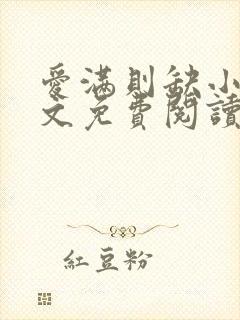 愛滿則缺小
文免費閱讀
紅豆粉